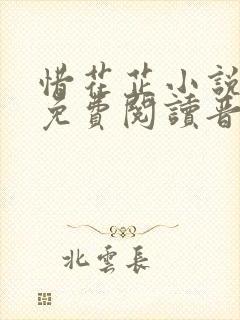 惜花芷小說
免費閱讀晋
北雲長